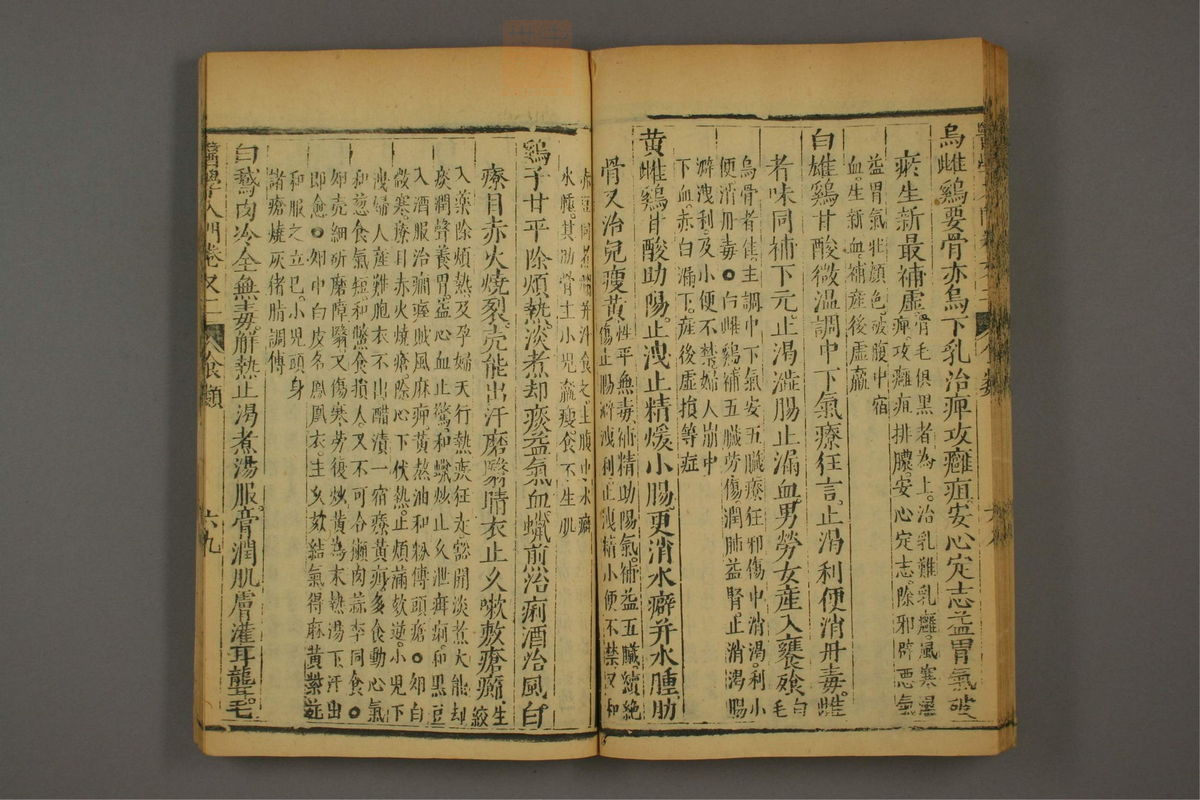 烏雌鷄要骨亦烏下乳治痺攻癰疽安心定志益胃氣破
瘀生新最補虛骨毛俱黑者為上治乳難乳癰風寒濕
痺攻癰疽排膿安心定志除邪辟惡氣
益胃氣壯顏色破腹中宿
血生新血補産後虛羸
白雄鷄甘酸微温調中下氣療狂言止渴利便消丹毒雌
者味同補下元止渴澁腸止漏血男勞女産入饔飱白毛
烏骨者佳主調中下氣安五臟療狂邪傷中消渴利小
便消丹毒○白雌鷄補五臟勞傷潤肺益腎止消渴腸
澼洩利及小便不禁婦人崩中
下血赤白漏下産後虛損等症
黄雌鷄甘酸助陽止洩止精煖小腸更消水癖并水腫肋
骨又治兒瘦黄性平無毒補精助陽氣補益五臟續絶
傷止腸澼洩利止洩精小便不禁又和
赤豆同煮
汁食之主腹中水癖
水腫其肋骨主小兒羸瘦食不生肌
鷄子甘平除煩熱淡煮却痰益氣血蠟煎治痢酒治風白
療目赤火燒裂殼能出汗磨翳晴衣止久嗽敷瘡癩生絞
入藥除煩熱及孕婦天行熱疾狂走豁開淡煮大能却
痰潤聲養胃益心血止驚和蠟炒止久泄痢和黒豆
入酒服治癇痙賊風麻痺黄熬油和粉傅頭瘡○卵白
微寒療目赤火燒瘡除心下伏熱止煩滿欬逆小兒下
洩婦人産難胞衣不出醋漬一宿療黄疸多食動心氣
和葱食氣短和鱉食損人又不可合獺肉蒜李同食○
卵殼細研磨障翳又傷寒勞復炒黄為末熱湯下汗出
即愈○卵中白皮名鳳凰衣主久欬結氣得麻黄紫菀
和服之立已小兒頭身
諸瘡燒灰猪脂調傅
白鵞肉冷全無毒解熱止渴煮湯服膏潤肌膚灌耳聾毛
醫學入門卷又二
食類
六九